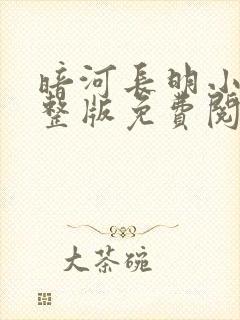 暗河長明小
整版免費閱
大茶碗